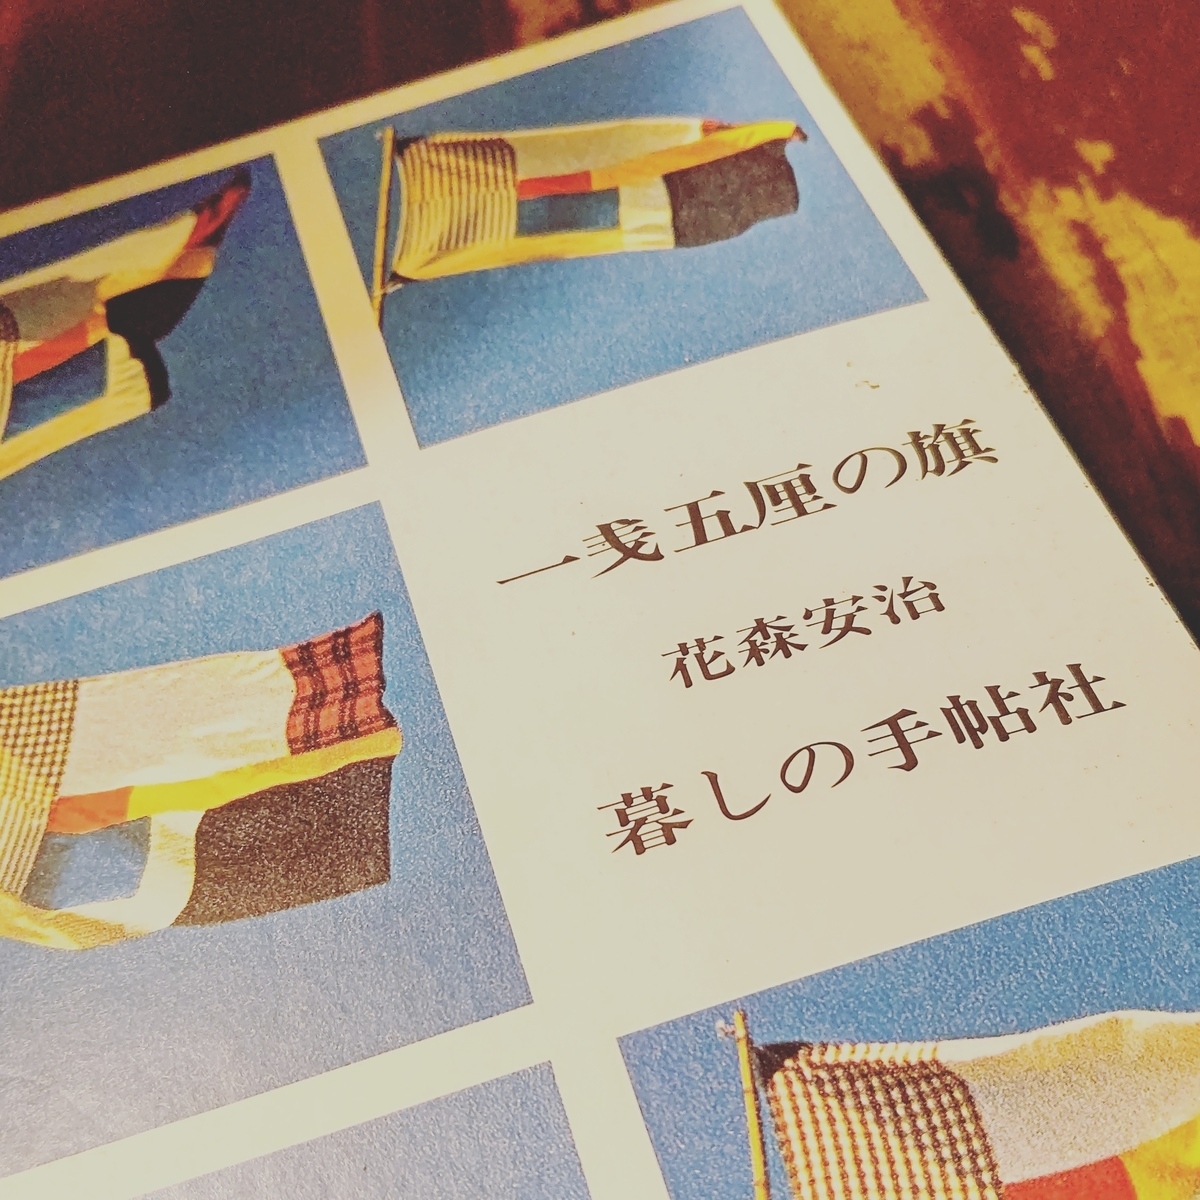 一戔五厘の旗
花森安治
暮しの手帖社